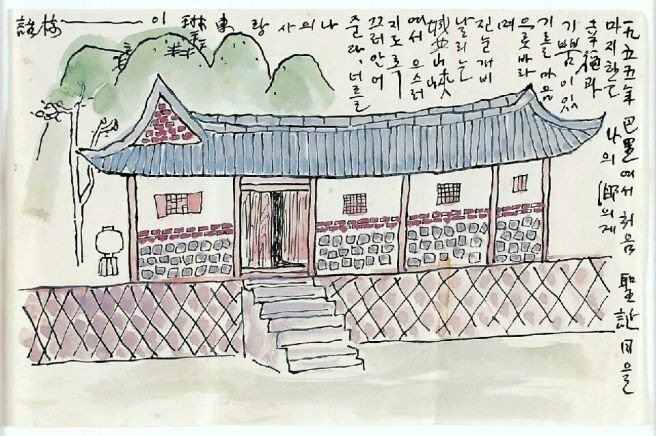 一九五五年 巴里에서 처음 聖誕日을
마지하는 나의 鄕의게
幸福과
기쁨이 있
기를 마음
으로 바라
며
진눈개비
날리는
城北山峽
에서 으스러
지도록
끄러안어
준다, 너를
나의 사랑 東琳이